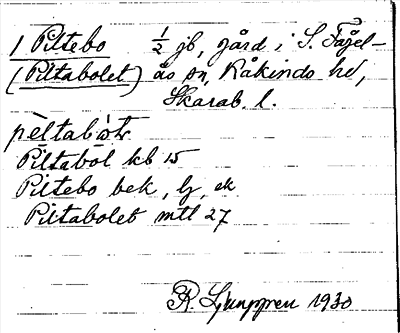 1 Piltebo ½ jb, gård i S. Fågel-
(Piltabolet) ås sn, Kåkinds hd,
Skarab. l.
pèltabó̀tr
Piltabol kb 15
Piltebo bek, lj, ek
Piltabolet mtl 27
R. Ljunggren 1930